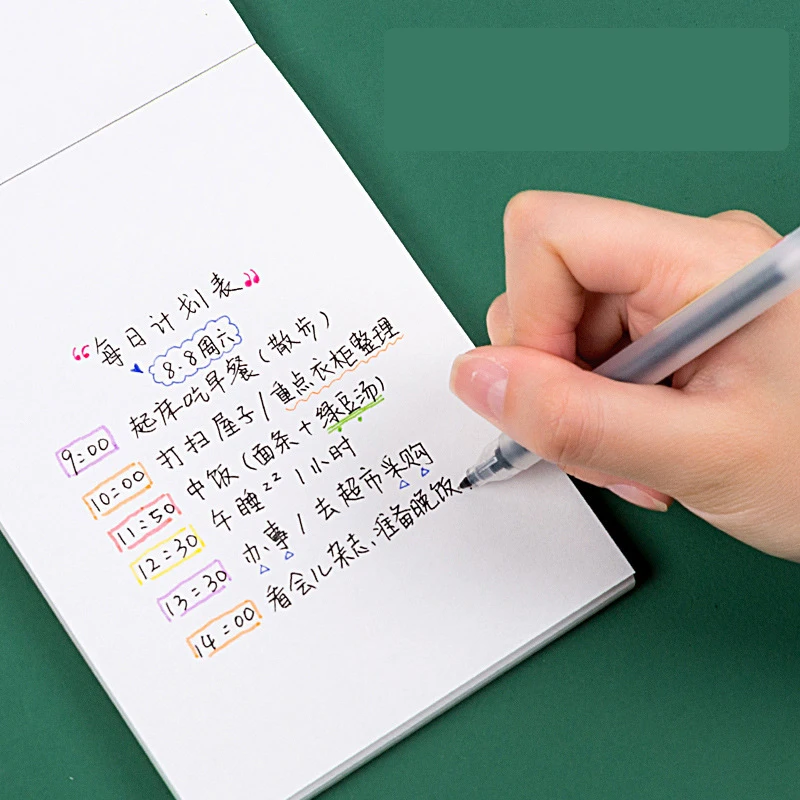 “每日计划表”
8.8周六
9:00 起床吃早餐(散步)
10:00 打扫屋子/重点衣柜整理
11:50 中饭(面条+绿豆汤)
12:30 午睡zz 1小时
13:30 办事/去超市采购
14:00 看会儿杂志、准备晚饭